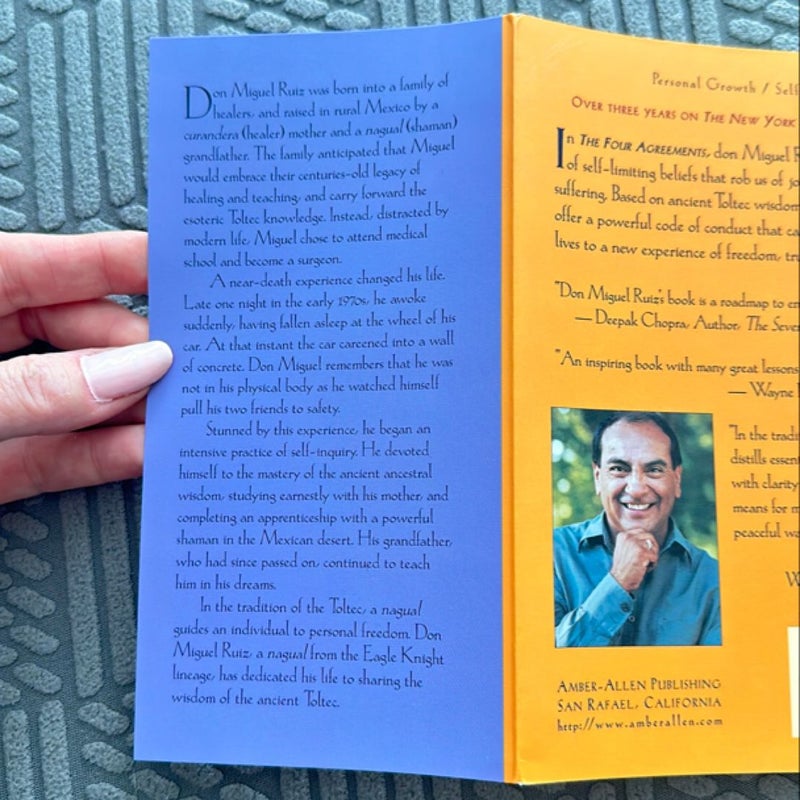 Don Miguel Ruiz was born into a family of
healers, and raised in rural Mexico by a
curandera (healer) mother and a nagual (shaman)
grandfather. The family anticipated that Miguel
would embrace their centuries-old legacy of
healing and teaching, and carry forward the
esoteric Toltec knowledge. Instead, distracted by
modern life, Miguel chose to attend medical
school and become a surgeon.
A near-death experience changed his life.
Late one night in the early 1970s, he awoke
suddenly, having fallen asleep at the wheel of his
car. At that instant the car careened into a wall
of concrete. Don Miguel remembers that he was
not in his physical body as he watched himself
pull his two friends to safety.
Stunned by this experience, he began an
intensive practice of self-inquiry. He devoted
himself to the mastery of the ancient ancestral
wisdom, studying earnestly with his mother, and
completing an apprenticeship with a powerful
shaman in the Mexican desert. His grandfather,
who had since passed on, continued to teach
him in his dreams.
In the tradition of the Toltec, a nagual
guides an individual to personal freedom. Don
Miguel Ruiz, a nagual from the Eagle Knight
lineage, has dedicated his life to sharing the
wisdom of the ancient Toltec.
Personal Growth / Self
OVER THREE YEARS ON THE NEW YORK
In THE FOUR AGREEMENTS, don Miguel R
of self-limiting beliefs that rob us of jo
suffering. Based on ancient Toltec wisdom
offer a powerful code of conduct that ca
lives to a new experience of freedom, tru
"Don Miguel Ruiz's book is a roadmap to en
— Deepak Chopra, Author, The Seve
"An inspiring book with many great lessons
— Wayne
"In the tradi
distills essen
with clarity
means for m
peaceful wa
W
AMBER-ALLEN PUBLISHING
SAN RAFAEL, CALIFORNIA
http://www.amberallen.com